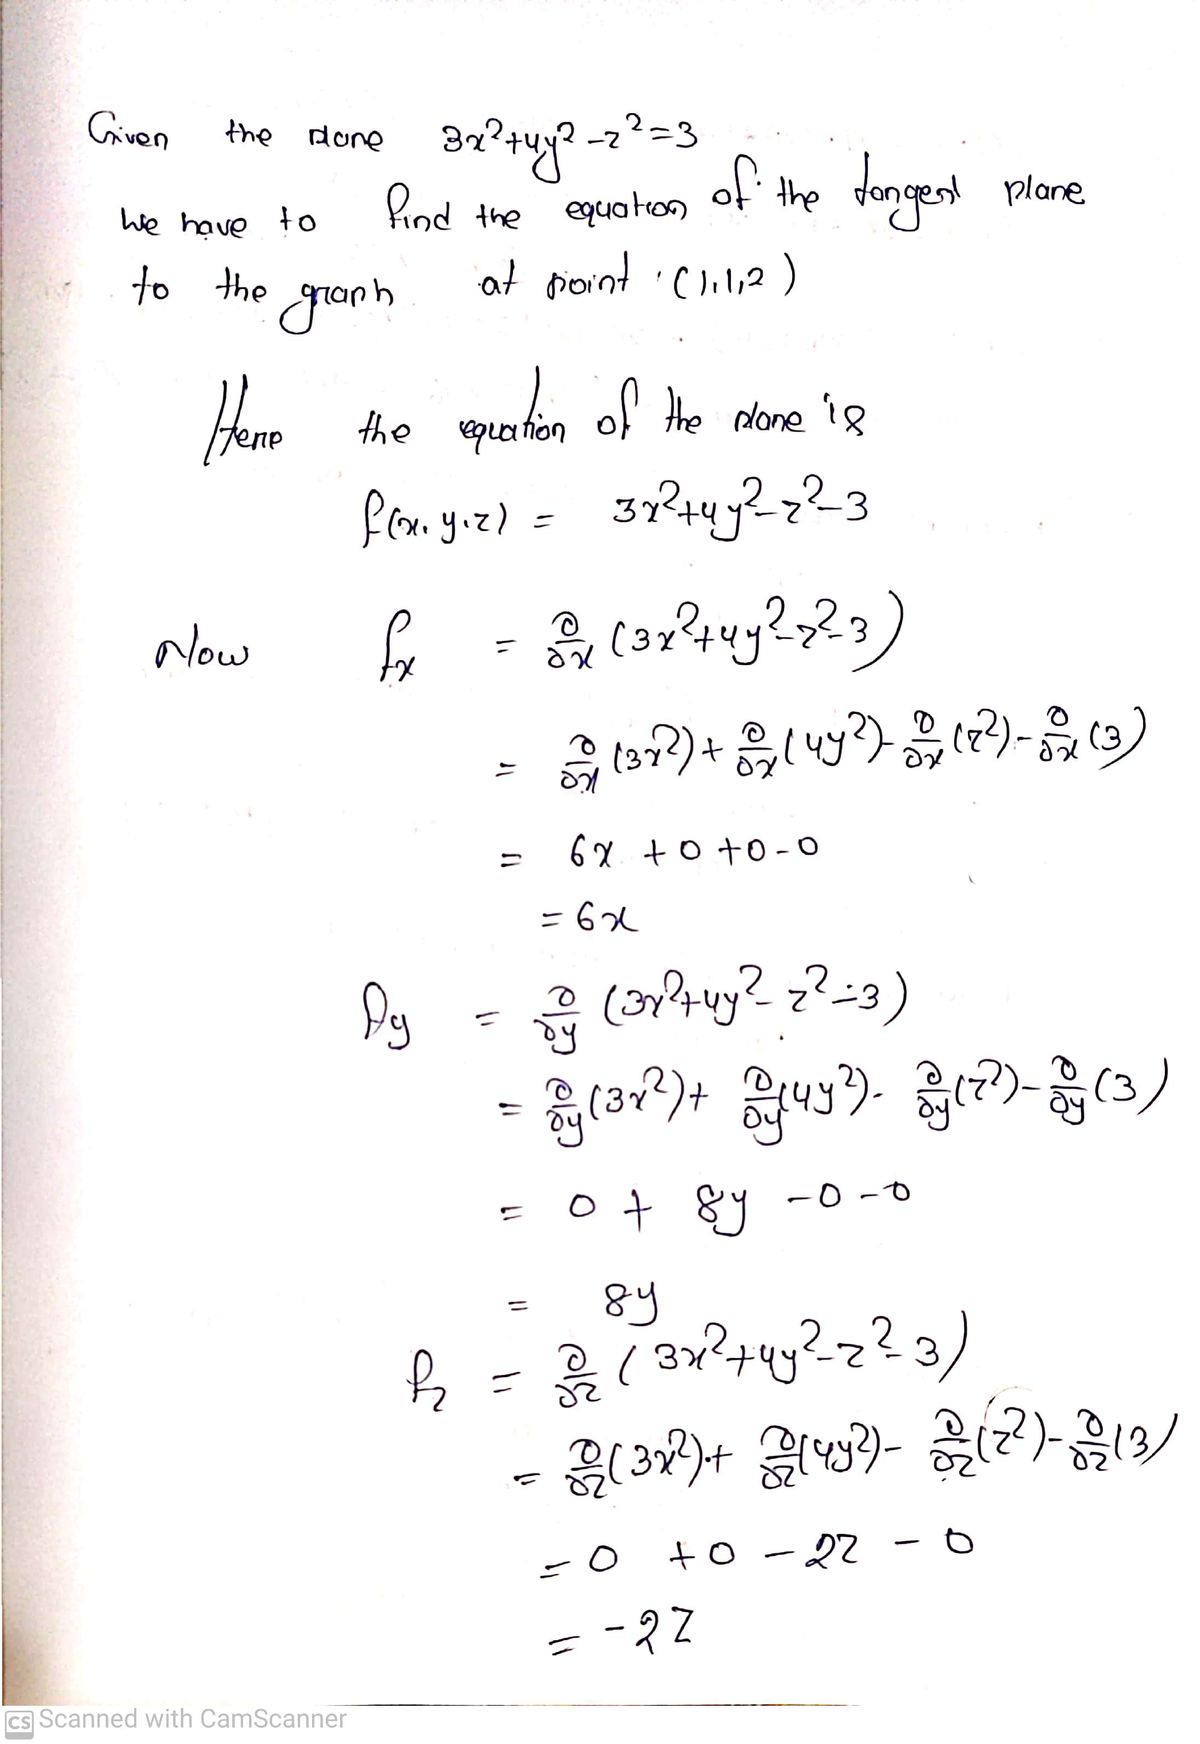 Given the plane 3x²+4y²-z²=3
we have to find the equation of the tangent plane
to the graph at point (1,1,2)
Here the equation of the plane is
f(x,y,z) = 3x²+4y²-z²-3
Now fx = ∂/∂x (3x²+4y²-z²-3)
= ∂/∂x (3x²)+ ∂/∂x (4y²)- ∂/∂x (z²)- ∂/∂x (3)
= 6x +0+0-0
= 6x
fy = ∂/∂y (3x²+4y²-z²-3)
= ∂/∂y (3x²)+ ∂/∂y (4y²)- ∂/∂y (z²)- ∂/∂y (3)
= 0 + 8y -0-0
= 8y
fz = ∂/∂z (3x²+4y²-z²-3)
= ∂/∂z (3x²)+ ∂/∂z (4y²)- ∂/∂z (z²)- ∂/∂z (3)
= 0 +0 - 2z - 0
= -2z
CS Scanned with CamScanner